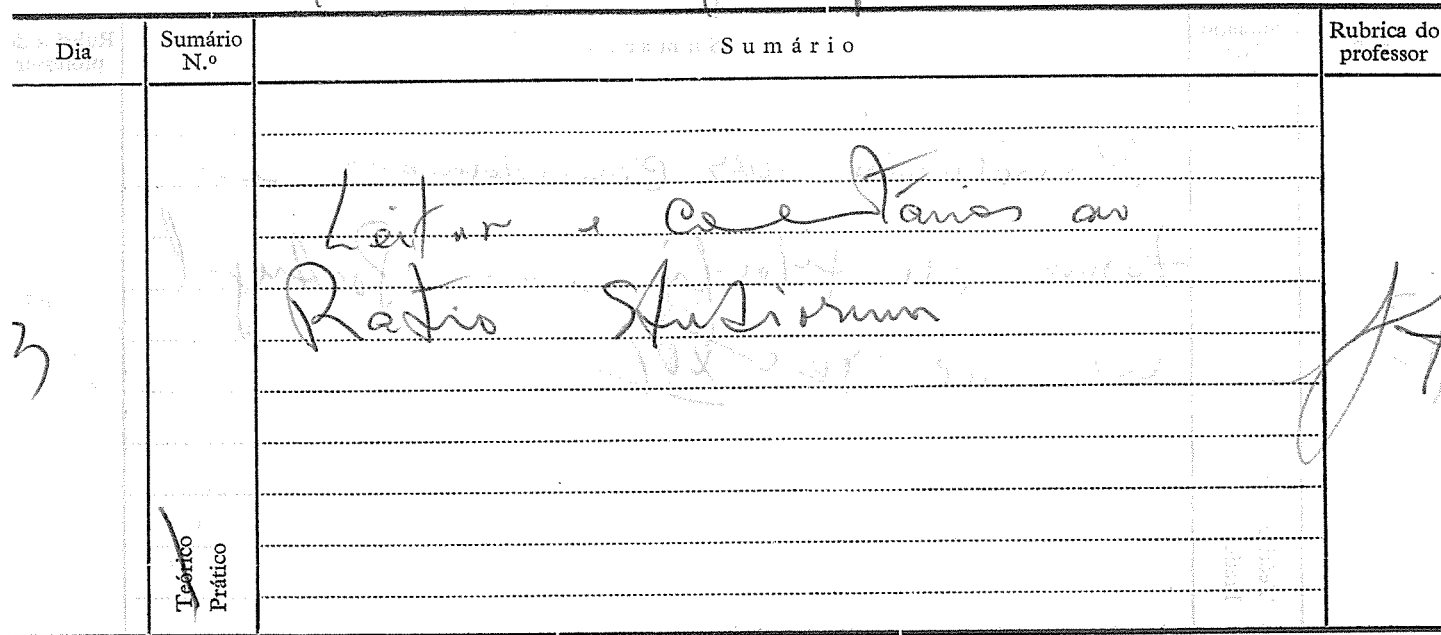 Dia
Sumário N.º
Sumário
Rubrica do professor
Leitura e Comentários ao
Ratio Studiorum
3
Teórico
Prático